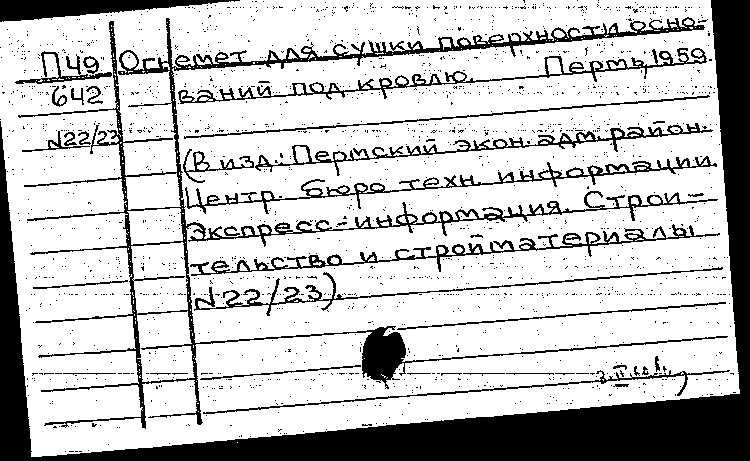 П49 Огнемет для сушки поверхности осно-
642 ваний под кровлю. Пермь, 1959.
N22/23
(В изд.: Пермский экон. адм. район.
Центр. бюро техн. информации.
Экспресс-информация. Строи-
тельство и стройматериалы
N22/23).